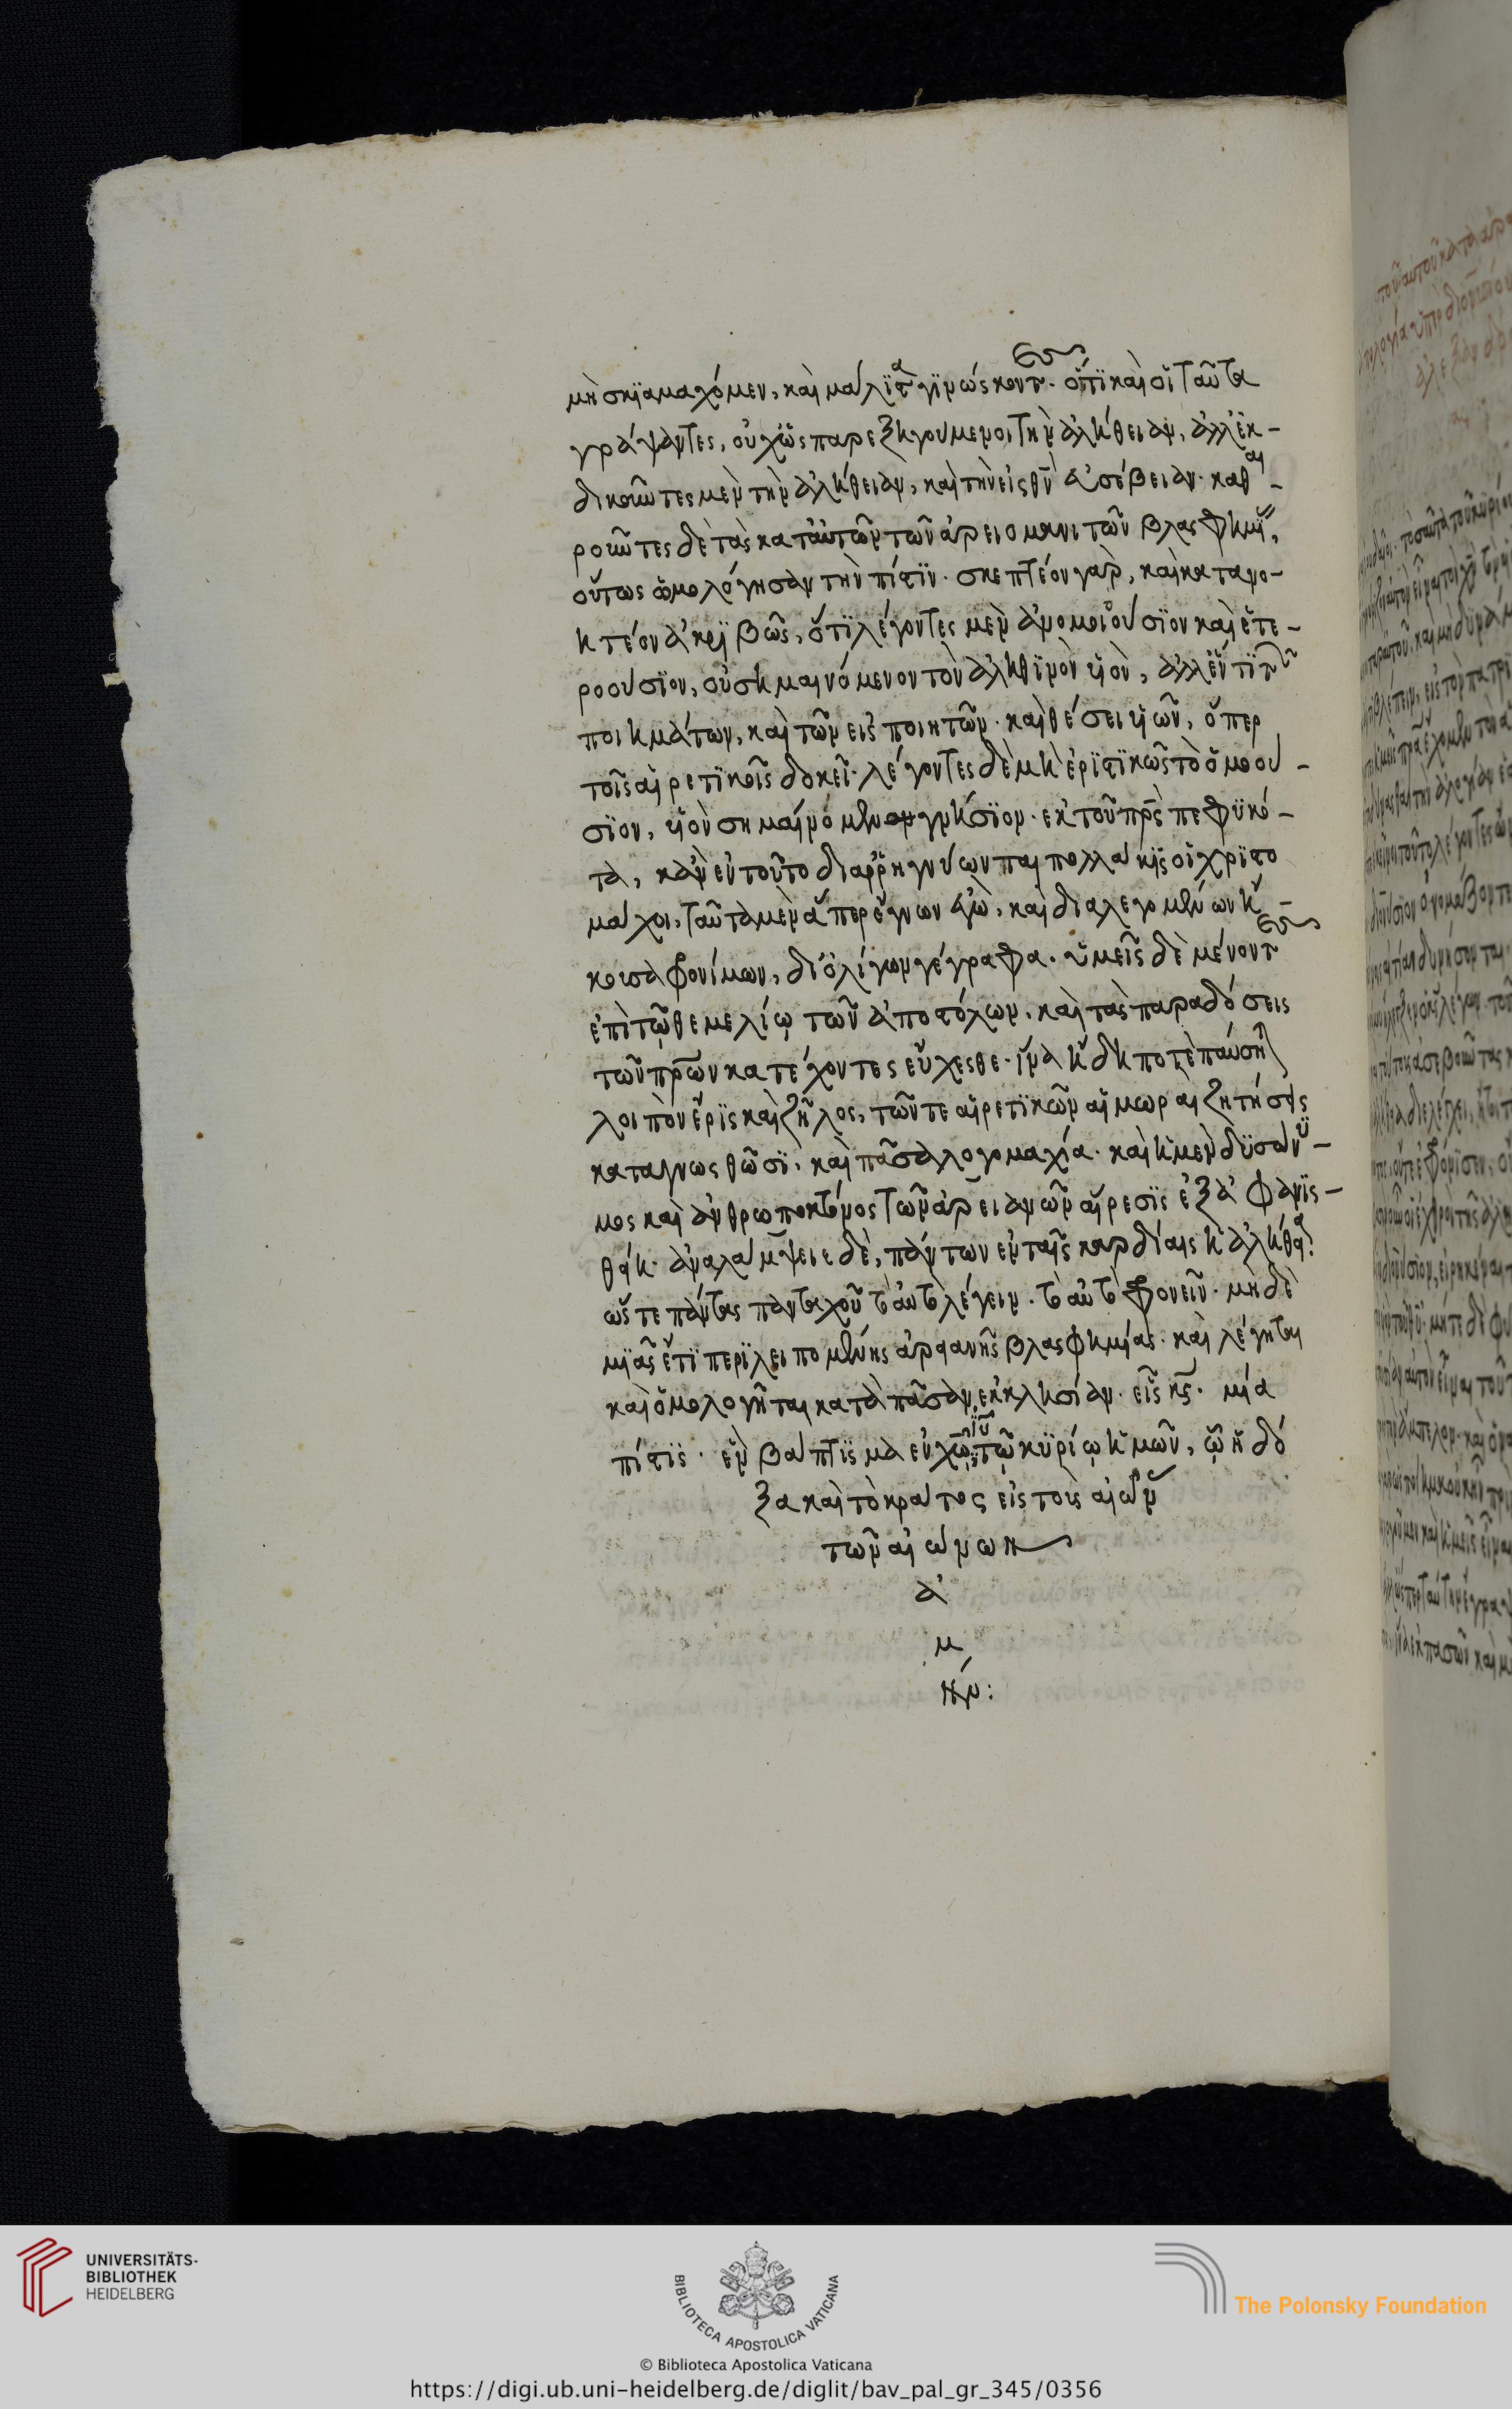 μὴ σκϊαμαχῶμεν, καὶ μάλϊστα γϊνώσκοντες· ὅτϊ καὶ οἱ ταῦτα
γράψαντες, οὐχ ὡς παρεξηγούμενοι τὴν ἀλήθειαν, ἀλλ' ἐκ-
δικοῦντες μὲν τὴν ἀλήθειαν, καὶ τὴν εἰς θν εὐσέβειαν· καθαι-
ροῦντες δὲ τὰς κατ' αὐτῶν τῶν ἀρειομανιτῶν βλασφημίας,
οὕτως ὡμολόγησαν τὴν πίστϊν· σκεπτέον γὰρ, καὶ κατανο-
ητέον ἀκρϊβῶς, ὅτϊ λέγοντες μὲν ἀνομοιούσϊον καὶ ἑτε-
ροούσϊον, οὐ σημαινόμενον τὸν ἀληθϊνὸν υἱὸν, ἀλλ' ἕν τϊ τῶν
ποιημάτων, καὶ τῶν εἰσποιητῶν· καὶ θέσει υἱῶν, ὅπερ
τοῖς αἱρετϊκοῖς δοκεῖ· λέγοντες δὲ μὴ ἐρϊστϊκῶς τὸ ὁμοού-
σϊον, υἱὸν σημαινόμενον γνήσϊον· ἐκ τοῦ πρς πεφϋκό-
τα, κἂν ἐν τοῦτο διαρρηγνύων παι πολλάκϊς οἱ χρϊστο
μάχοι, ταῦτα μὲν ἅπερ ἔγνων ἐγὼ, καὶ διαλεγομένων ἤ-
κουσα φρονίμων, δι' ὀλίγων γέγραφα· ὑμεῖς δὲ μένοντες
ἐπὶ τῷ θεμελίῳ τῶν ἀποστόλων, καὶ τὰς παραδόσεις
τῶν πρων κατέχοντες εὔχεσθε· ἵνα ἤδη ποτὲ παύσηται
λοιπὸν ἔρϊς καὶ ζῆλος, τῶν τε αἱρετϊκῶν αἱ μωραὶ ζητήσεις
καταγνωσθῶσϊ, καὶ πᾶσα λογομαχία· καὶ ἡ μὲν δϋσώνϋ-
μος καὶ ἀνθρωποκτόνος τῶν ἀρειανῶν αἵρεσϊς ἐξαφανϊσ-
θείη· ἀναλάμψειε δὲ, πάντων ἐν ταῖς καρδίαις ἡ ἀλήθεια·
ὥστε πάντας πανταχοῦ τὸ αὐτὸ λέγειν· τὸ αὐτὸ φρονεῖν· μηδὲ
μϊᾶς ἔτϊ περϊλειπομένης ἀρειανῆς βλασφημίας· καὶ λέγηται
καὶ ὁμολογῆται κατὰ πᾶσαν ἐκκλησίαν· εἷς κς· μία
πίστϊς· ἓν βάπτϊσμα ἐν χῷ ϊυ τῷ κϋρίῳ ἡμῶν, ᾧ ἡ δό
ξα καὶ τὸ κράτος εἰς τοὺς αἰῶνας
τῶν αἰώνων
ἀ
μ
ήν:
UNIVERSITÄTS-
BIBLIOTHEK
HEIDELBERG
BIBLIOTECA APOSTOLICA VATICANA
The Polonsky Foundation
© Biblioteca Apostolica Vaticana
https://digi.ub.uni-heidelberg.de/diglit/bav_pal_gr_345/0356